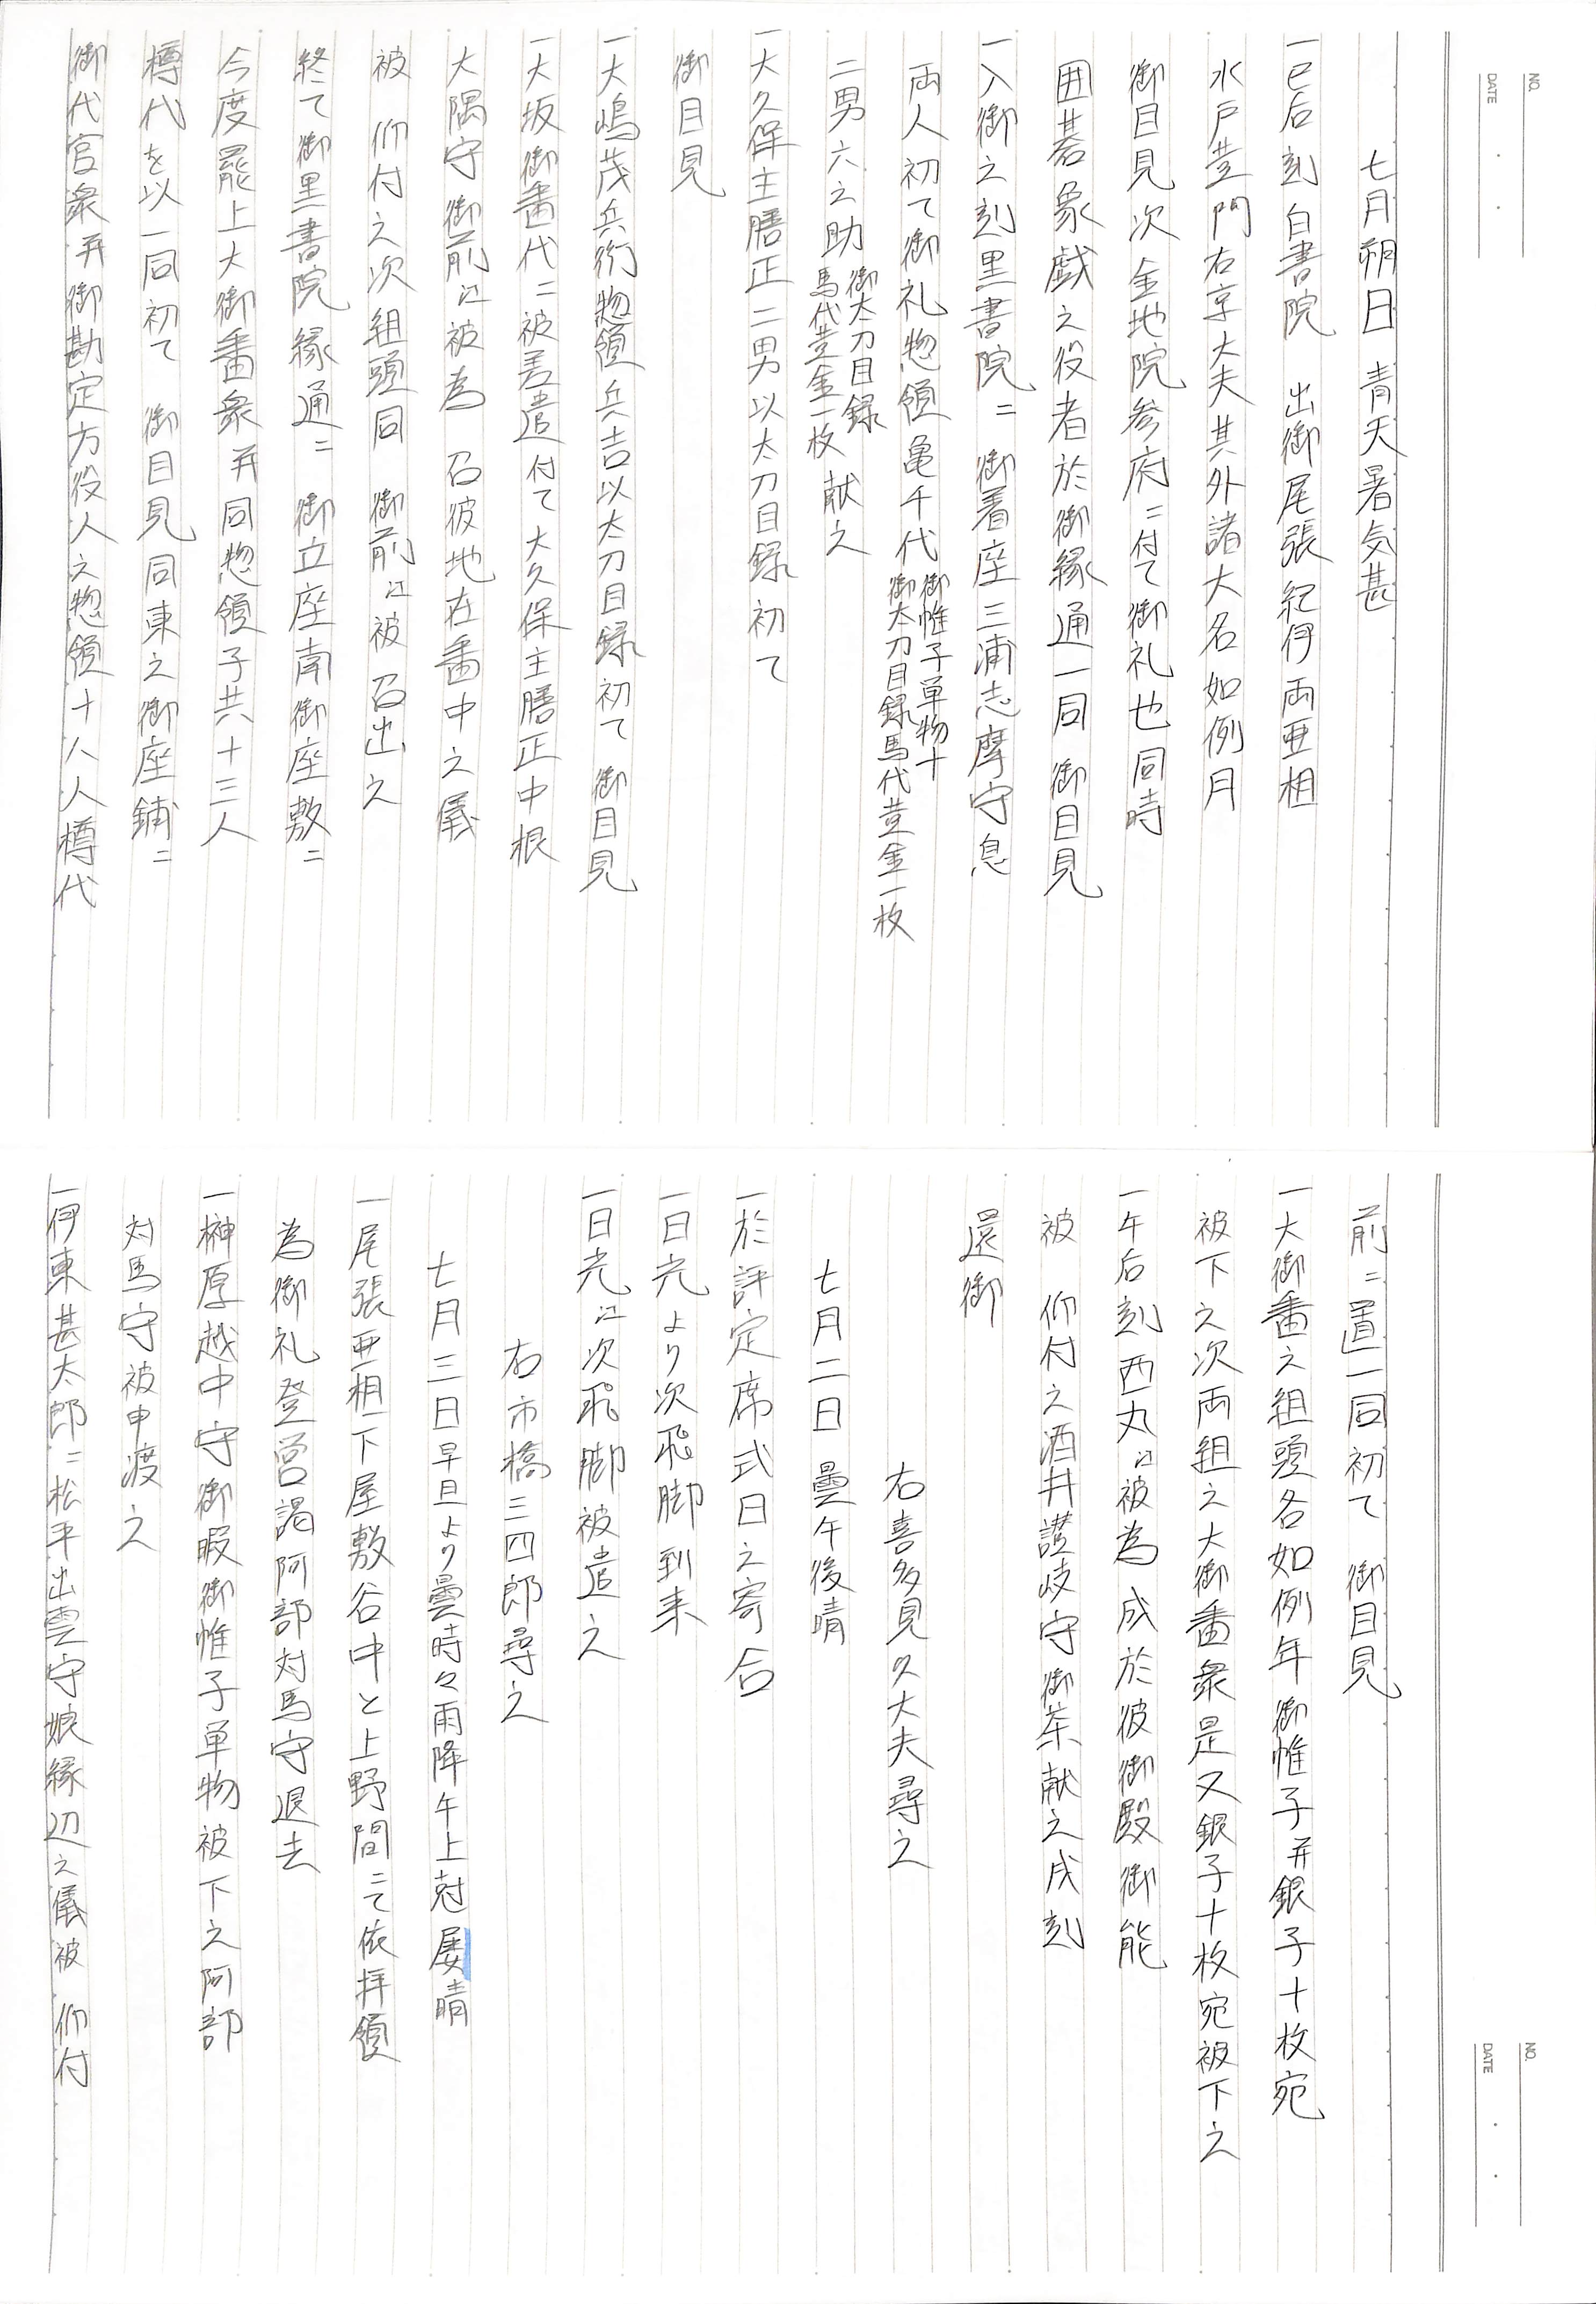 NO.
DATE
七月朔日 青天暑気甚
一巳后刻白書院 出御尾張紀伊両亜相
水戸黄門右京大夫其外諸大名如例月
御目見次金地院参府ニ付て御礼也同時
囲碁象戯之役者於御縁通一同 御目見
一入御之刻黒書院ニ 御着座三浦志摩守息
両人初て御礼惣領亀千代 御帷子単物十 御太刀目録馬代黄金一枚
二男六之助 御太刀目録 馬代黄金一枚 献之
一大久保主膳正二男以太刀目録初て
御目見
一大嶋茂兵衛惣領兵吉以太刀目録初て 御目見
一大坂御番代ニ被差遣付て大久保主膳正中根
大隅守御前江被為 召彼地在番中之儀
被 仰付之次組頭同 御前江被 召出之
終て御黒書院縁通ニ 御立座南御座敷ニ
今度罷上大御番衆并同惣領子共十三人
樽代を以一同初て 御目見同東之御座鋪ニ
御代官衆并御勘定方役人之惣領十八人樽代
NO.
DATE
前ニ置一同初て 御目見
一大御番之組頭各如例年御帷子并銀子十枚宛
被下之次両組之大御番衆是又銀子十枚宛被下之
一午后刻西丸江被為 成於彼御殿御能
被 仰付之酒井讃岐守御茶献之戌刻
還御
右喜多見久大夫尋之
七月二日 曇午後晴
一於評定席式日之寄合
一日光より次飛脚到来
一日光江次飛脚被遣之
右市橋三四郎尋之
七月三日早旦より曇時々雨降午上尅屡晴
一尾張亜相下屋敷谷中と上野間ニて依拝領
為御礼登営謁阿部対馬守退去
一榊原越中守御暇御帷子単物被下之阿部
対馬守被申渡之
一伊東甚太郎ニ松平出雲守娘縁辺之儀被 仰付